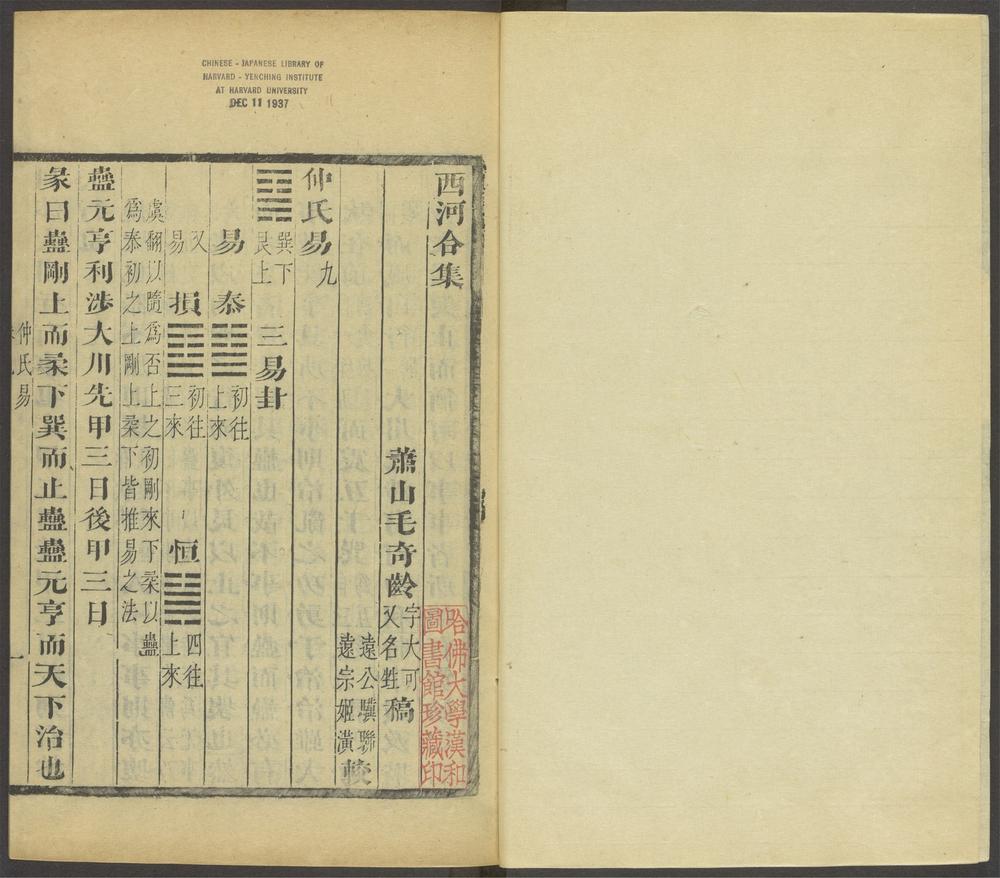 CHINESE - JAPANESE LIBRARY OF
HARVARD - YENCHING INSTITUTE
AT HARVARD UNIVERSITY
DEC 11 1937
西河合集
蕭山毛奇齡字大可又名甡稿
遠公驥聯
遠宗姬潢
較
仲氏易九
䷑巽下艮上 三易卦
易 泰䷊初往上來
又易 損䷨初往三來 恒䷟四往上來
虞翻以隨爲否上之初剛來下柔以蠱
爲泰初之上剛上柔下皆推易之法
蠱元亨利涉大川先甲三日後甲三日
彖曰蠱剛上而柔下巽而止蠱蠱元亨而天下治也
仲氏易
一
哈佛大學漢和
圖書館珍藏印